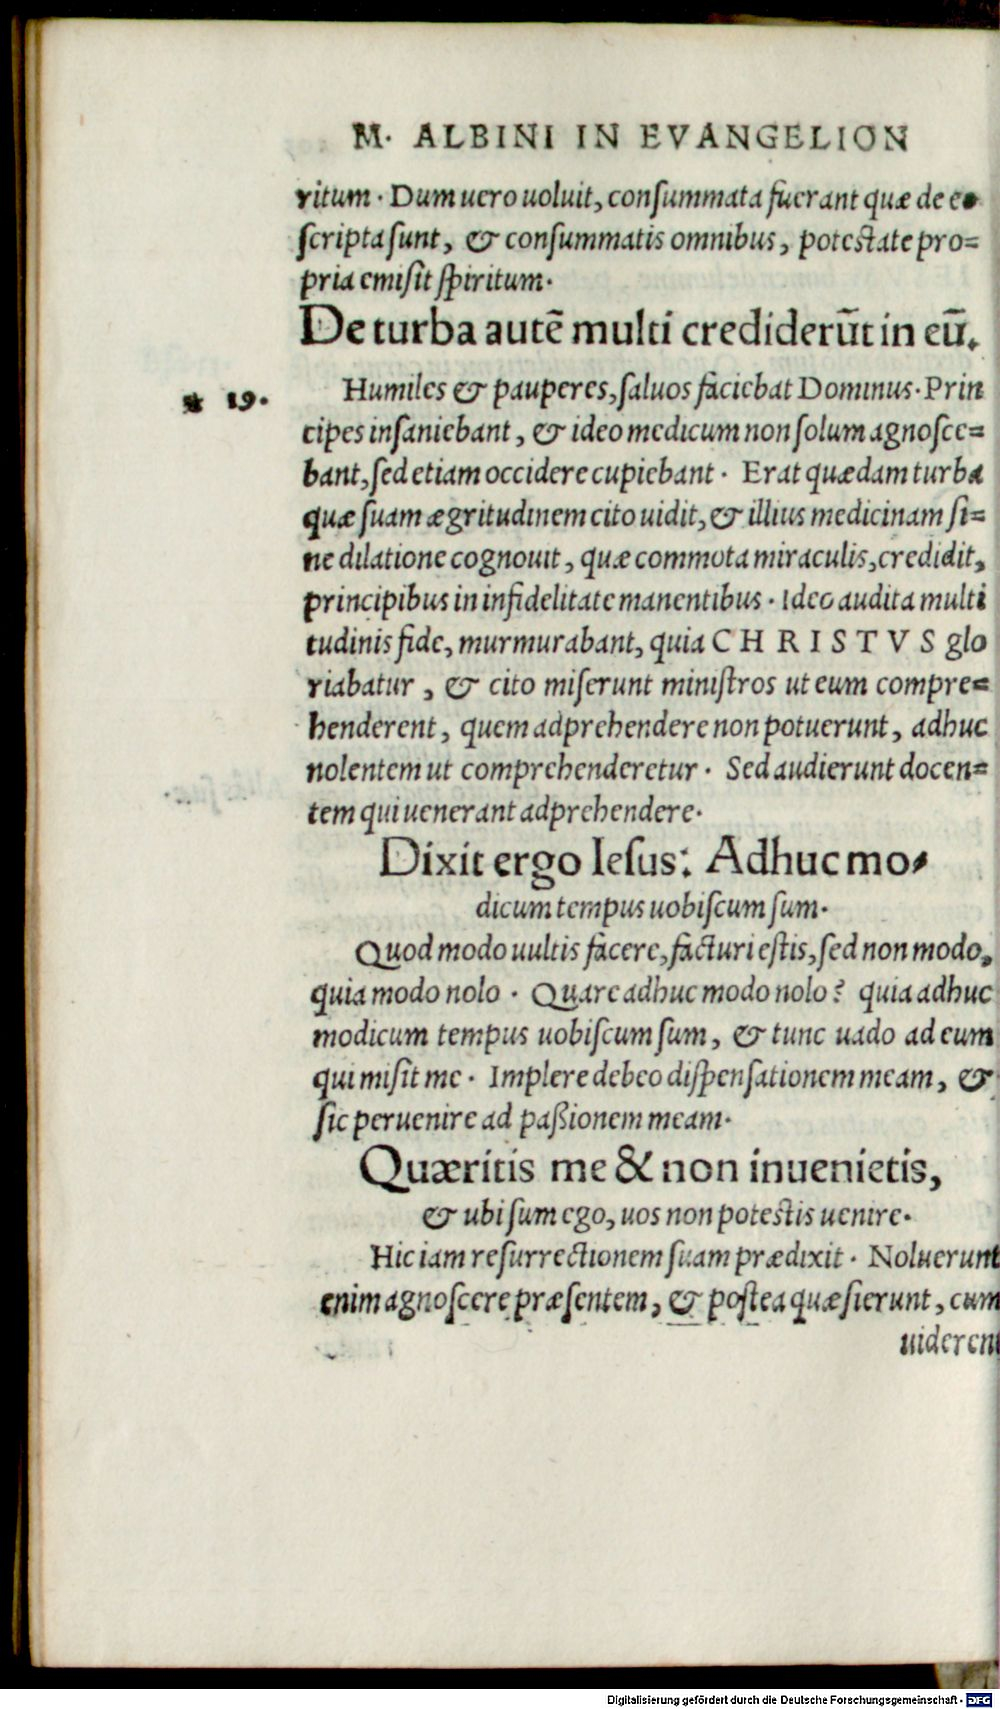 M. ALBINI IN EVANGELION
ritum. Dum uero uoluit, conſummata fuerant quæ de eo
ſcripta ſunt, & conſummatis omnibus, poteſtate pro=
pria emiſit ſpiritum.
De turba autē multi crediderūt in eū.
* 19.
Humiles & pauperes, ſaluos faciebat Dominus. Prin
cipes inſaniebant, & ideo medicum non ſolum agnoſce=
bant, ſed etiam occidere cupiebant. Erat quædam turba
quæ ſuam ægritudinem cito uidit, & illius medicinam ſi=
ne dilatione cognouit, quæ commota miraculis, credidit,
principibus in infidelitate manentibus. Ideo audita multi
tudinis fide, murmurabant, quia CHRISTVS glo
riabatur, & cito miſerunt miniſtros ut eum compre=
henderent, quem adprehendere non potuerunt, adhuc
nolentem ut comprehenderetur. Sed audierunt docen=
tem qui uenerant adprehendere.
Dixit ergo Ieſus: Adhuc mo-
dicum tempus uobiſcum ſum.
Quod modo uultis facere, facturi eſtis, ſed non modo,
quia modo nolo. Quare adhuc modo nolo? quia adhuc
modicum tempus uobiſcum ſum, & tunc uado ad eum
qui miſit me. Implere debeo diſpenſationem meam, &
ſic peruenire ad paßionem meam.
Quæritis me & non inuenietis,
& ubi ſum ego, uos non poteſtis uenire.
Hic iam reſurrectionem ſuam prædixit. Noluerunt
enim agnoſcere præſentem, & poſtea quæſierunt, cum
uiderent
Digitalisierung gefördert durch die Deutsche Forschungsgemeinschaft - DFG